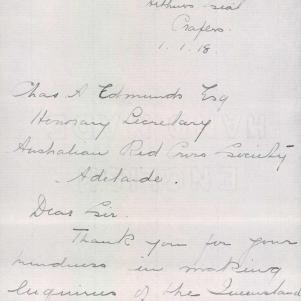 Arthurs Seat
Crafers.
1.1.18.
Chas A Edmunds Esq
Honorary Secretary
Australian Red Cross Society
Adelaide.
Dear Sir.
Thank you for your
kindness in making
Enquiries of the Queensland